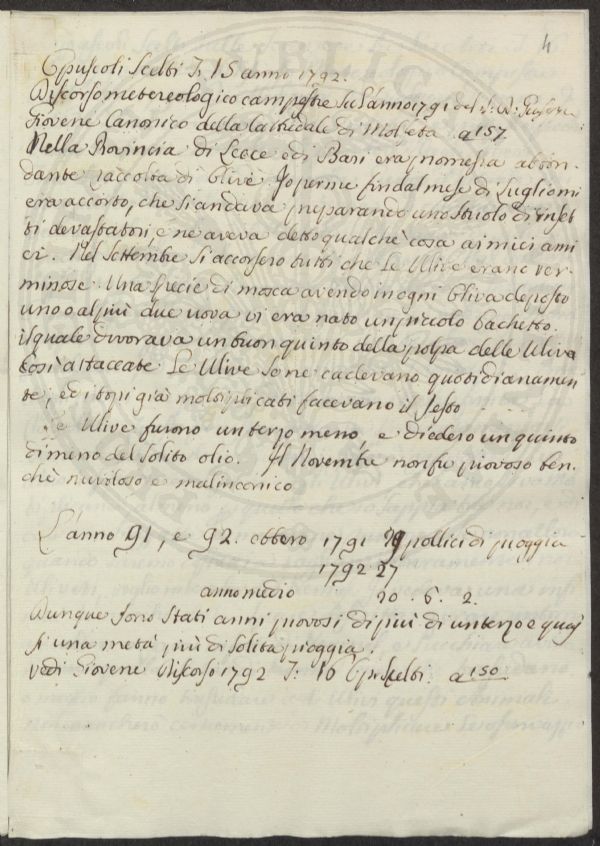 4
Opuscoli Scelti T. 15 anno 1792.
Discorso metereologico campestre del l'anno 1791 del S. D. Giuseppe
Giovene Canonico della Catredale di Molfeta a 157
Nella Provincia di Lecce e di Bari era promessa abbon-
dante raccolta di Olive. Io perme fin dal mese di Luglio mi
era accorto, che si andava preparando uno stuolo di inset
ti devastatori, e ne aveva detto qualche cosa ai miei ami
ci. Nel Settembre si accorsero tutti che Le Ulive erano ver-
minose. Una specie di mosca avendo in ogni Oliva deposto
uno o al più due uova vi era nato un piccolo bachetto.
il quale divorava un buon quinto della polpa delle Ulive
Così attaccate Le Ulive se ne cadevano quotidianamen
te, ed i topi già moltiplicati facevano il resto
Le Ulive furono un terzo meno, e diedero un quinto
di meno del solito olio. Il Novembre non fu piovoso ben-
chè nuvoloso e malinconico
L'anno 91, e 92. ebbero 1791 29 pollici di pioggia
1792 27
anno medio 20. 6. 2.
Dunque sono stati anni piovosi di più di un terzo e quaj
si una metà più di solita pioggia.
vedi Giovene Discorso 1792 T. 16 Op. Scelti a 150